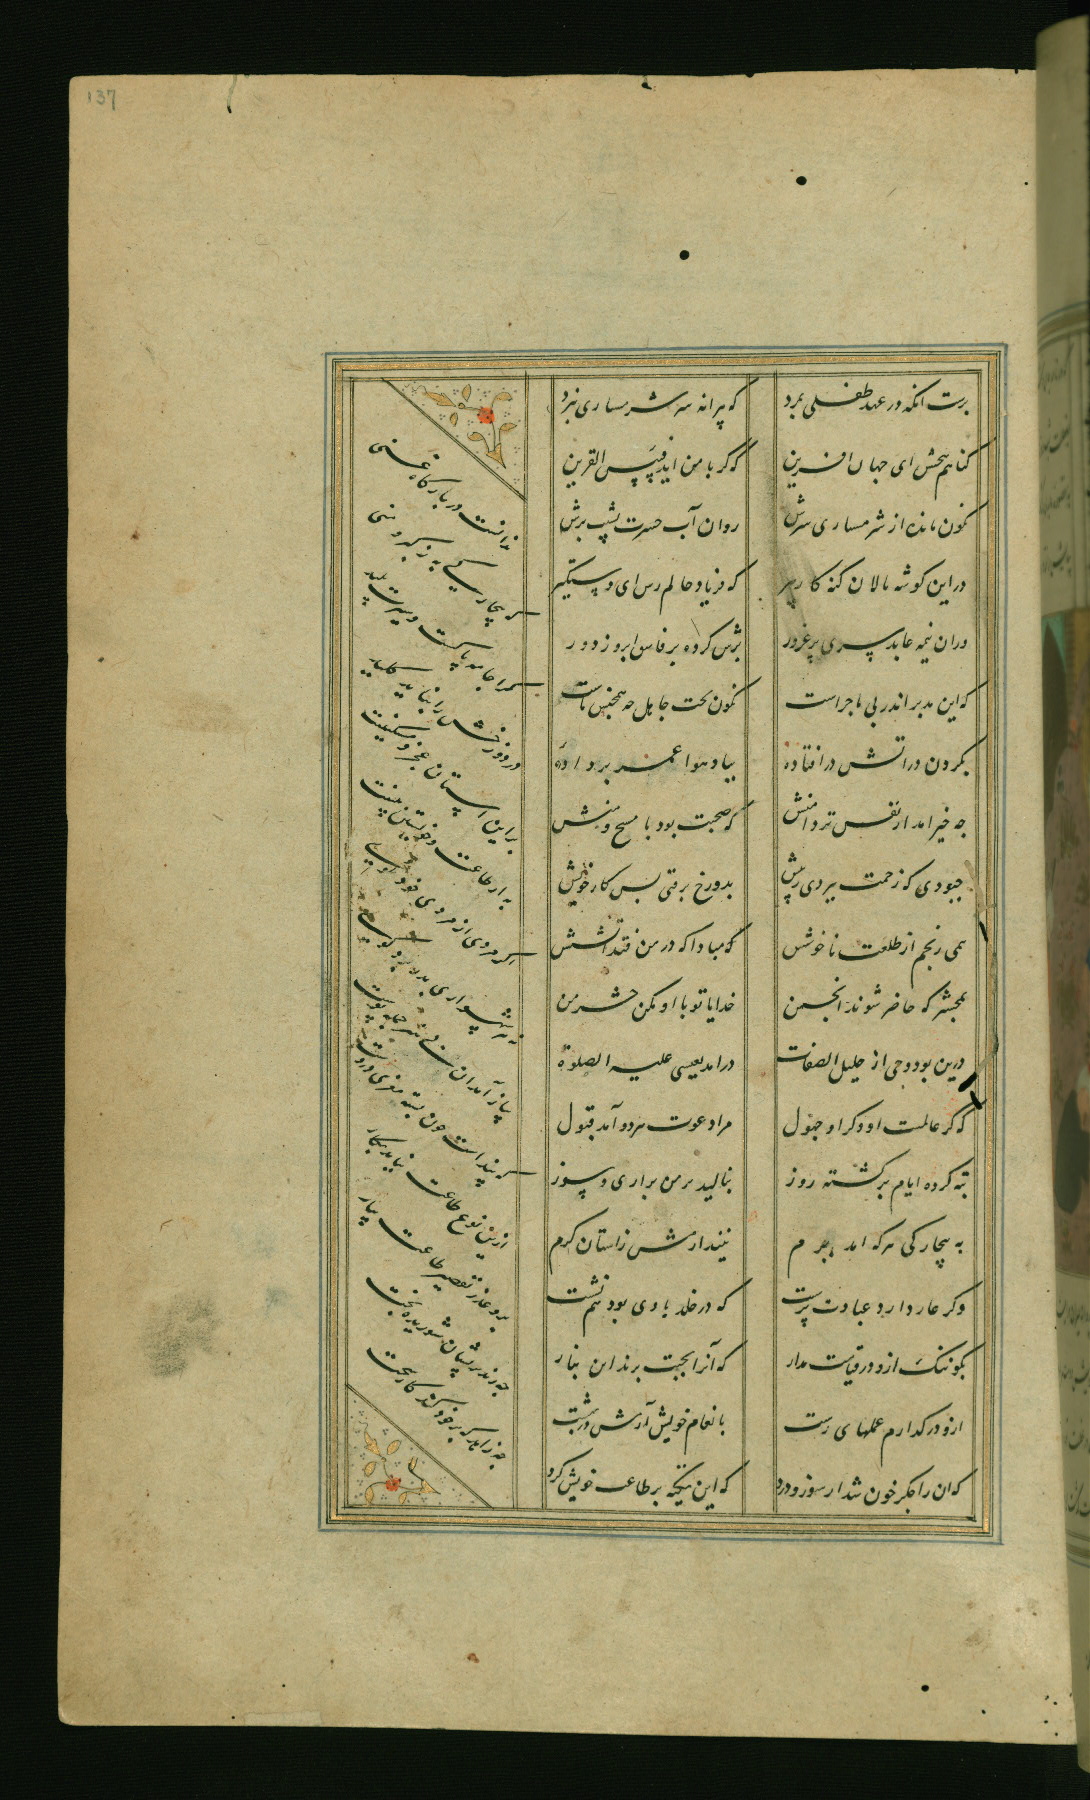 137
برست آنکه در عهد طفلی بمرد که پیرانه سر شرمساری نبرد
کناهم ببخش ای جهان افرین که کر با من آید فبیٔس القرین
نکون مانده از شرمساری سرش روان آب حسرت بشیب برش
درین کوشه نالان کنه کار پیر که فریاد حالم رس ای دستکیر
وزان نیمه عابد سری پر غرور ترش کرده بر فاسق ابرو ز دور
که این مدبر اندر پی ما چراست نکون بخت جاهل چه همجنس ماست
بکردن در آتش در افتاده بباد هوا عمر بر داده
چه خیر آمد از نفس تر دامنش که صحبت بود با مسیح و منش
چبودی که زحمت ببردی ز پیش بدوزخ برفتی پس کار خویش
همی رنجم از طلعت ناخوشش که مبادا که در من فتد آتشش
بمحشر که حاضر شوند انجمن خدایا تو با او مکن حشر من
درین بود و وحی از جلیل الصفات درامد بعیسی علیه الصلوة
که کر عالمست او وکر او جهول مرا دعوت هر دو آمد قبول
تبه کرده ایام برکشته روز بنالید بر من بزاری و سوز
به بیچارکی هر که آمد برم نیندازمش ز استان کرم
وکر عار دارد عبادت پرست که در خلد با وی بود هم نشست
بکو ننک ازو در قیامت مدار که آنرا بجنت برند این بنار
ازو درکذارم عملهای زشت بانعام خویش آرمش در بهشت
که آن را جکر خون شد از سوز و درد که این تکیه بر طاعت خویش کرد
ندانست در بارکاه غنی
که بیچارکی به ز کبر و منی
کرا جامه پاکست و سیرت پلید
در دوزخش را نباید کلید
برین استان عجز و مسکینیت
به از طاعت و خویشتن بینیت
اکر مردی از مردی خود مکوی
نه هر شهسواری بدر برد کوی
پیاز آمد آن بی هنر جمله پوست
که پنداشت چون پسته مغزی دروست
ازین نوع طاعت نیاید بکار
برو عذر تقصیر طاعت بیار
چه رند پریشان شوریده بخت
چه زاهد که بر خود کند کار سخت